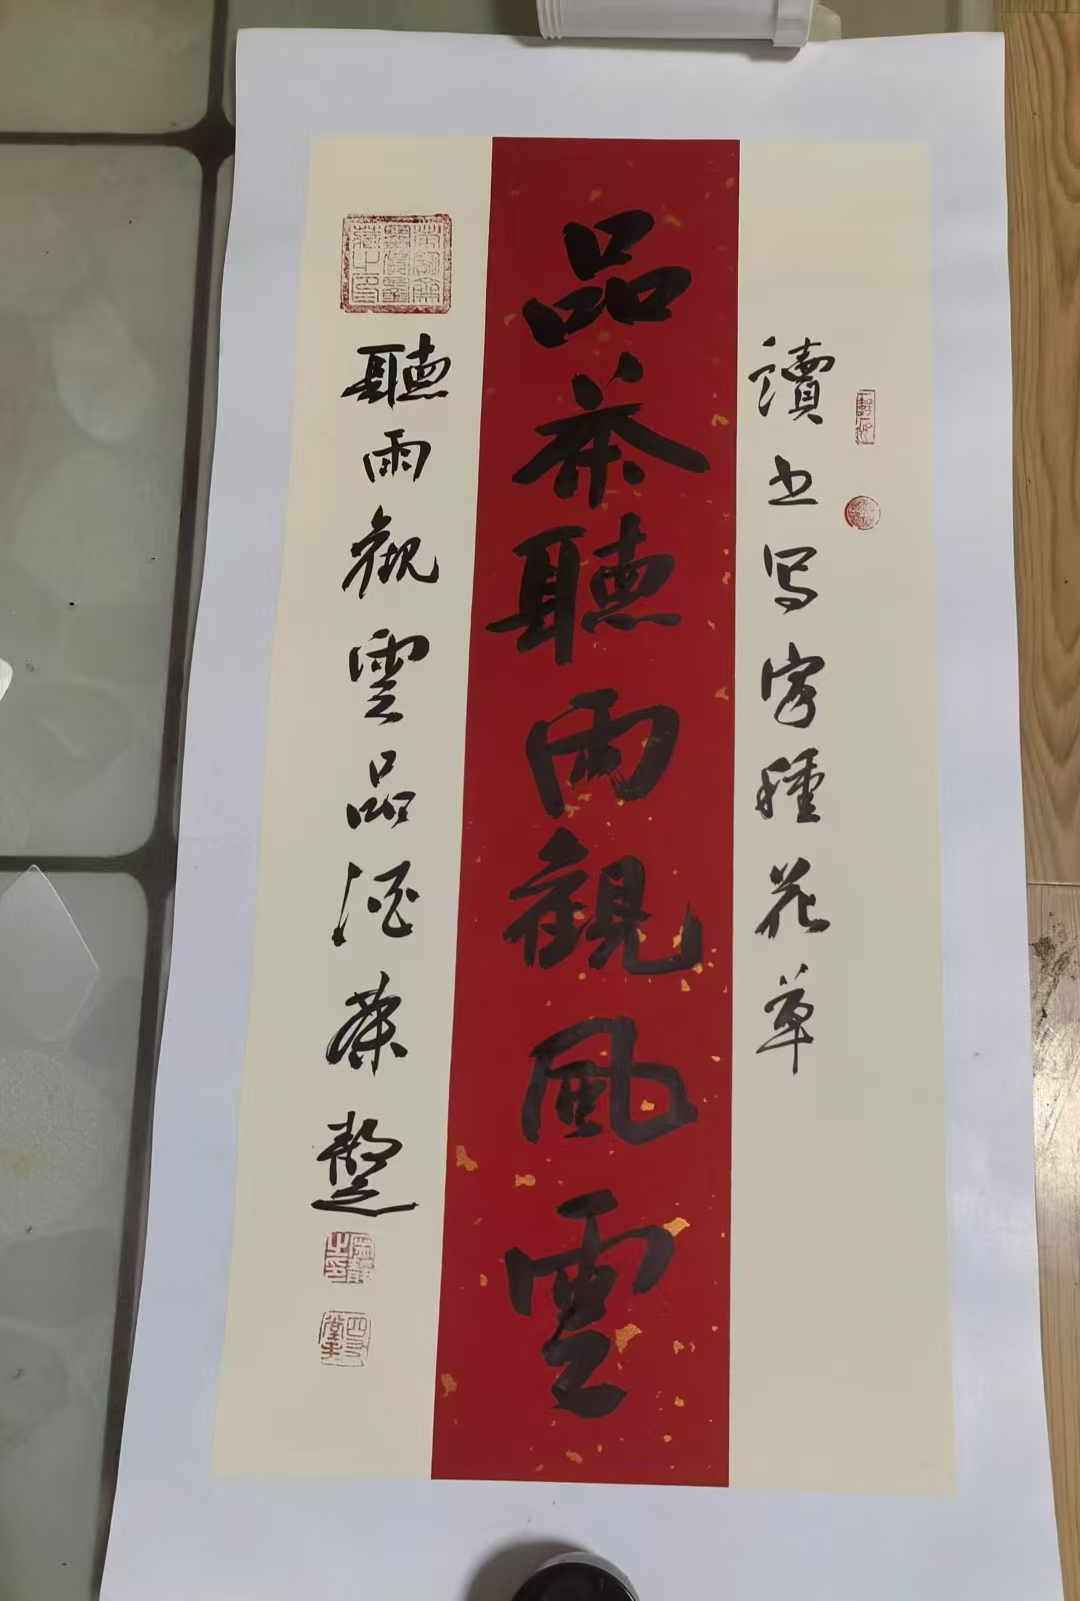 讀书写字種花草
品茶聽雨觀風雲
聽雨觀雲品酒茶